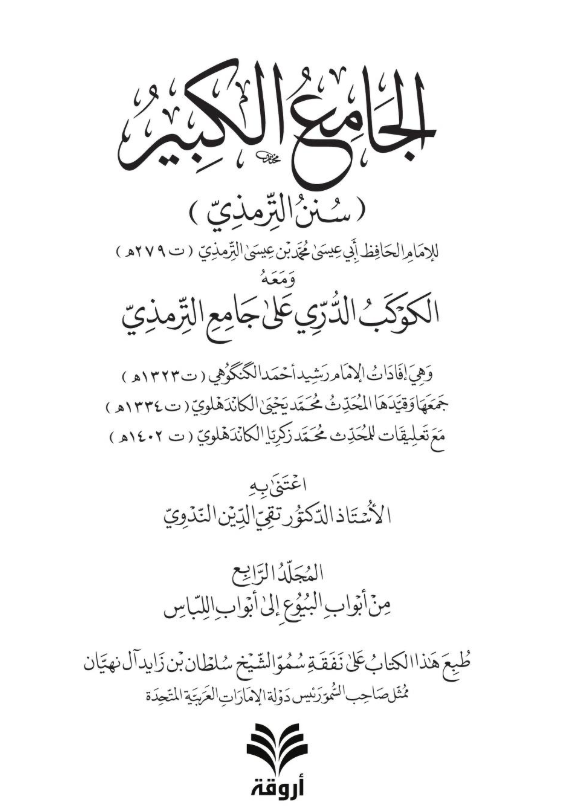 الجَامِعُ الكَبِيرُ
( سُنَنُ التِّرمذِيّ )
للإمَامِ الحَافِظِ أَبِي عِيسَىٰ مُحَمَّد بْن عِيسَىٰ التِّرمذِيّ ( ت ٢٧٩ هـ )
وَمَعَهُ
الكَوْكَبُ الدُّرِّي عَلَىٰ جَامِعِ التِّرمذِيّ
وَهِيَ إفَادَاتُ الإمَام رَشِيد أحْمَد الگنگوهِي ( ت ١٣٢٣ هـ )
جَمَعَهَا وَقَيَّدَهَا المُحَدِّثُ مُحَمَّد يَحْيَىٰ الكَاندَهلَويّ ( ت ١٣٣٤ هـ )
مَعَ تَعلِيقَات للمُحَدِّث مُحَمَّد زَكَرِيّا الكَاندَهلَويّ ( ت ١٤٠٢ هـ )
اعْتَنَىٰ بِهِ
الأُسْتَاذ الدّكتُور تَقِيّ الدِّيْن النَّدْوِيّ
المُجَلّدُ الرَّابِع
مِنْ أَبْوابِ البيُوعِ إِلىٰ أَبْوابِ اللِّبَاسِ
طُبِعَ هَذا الكتابُ عَلىٰ نَفَقَةِ سُمُوّ الشّيْخ سُلْطَان بْن زَايد آل نهيَان
ممُثّل صَاحِب السُّمو رَئيس دَوْلَة الإمَارَاتِ العَرَبيَّة المتّحِدَة
أروقة